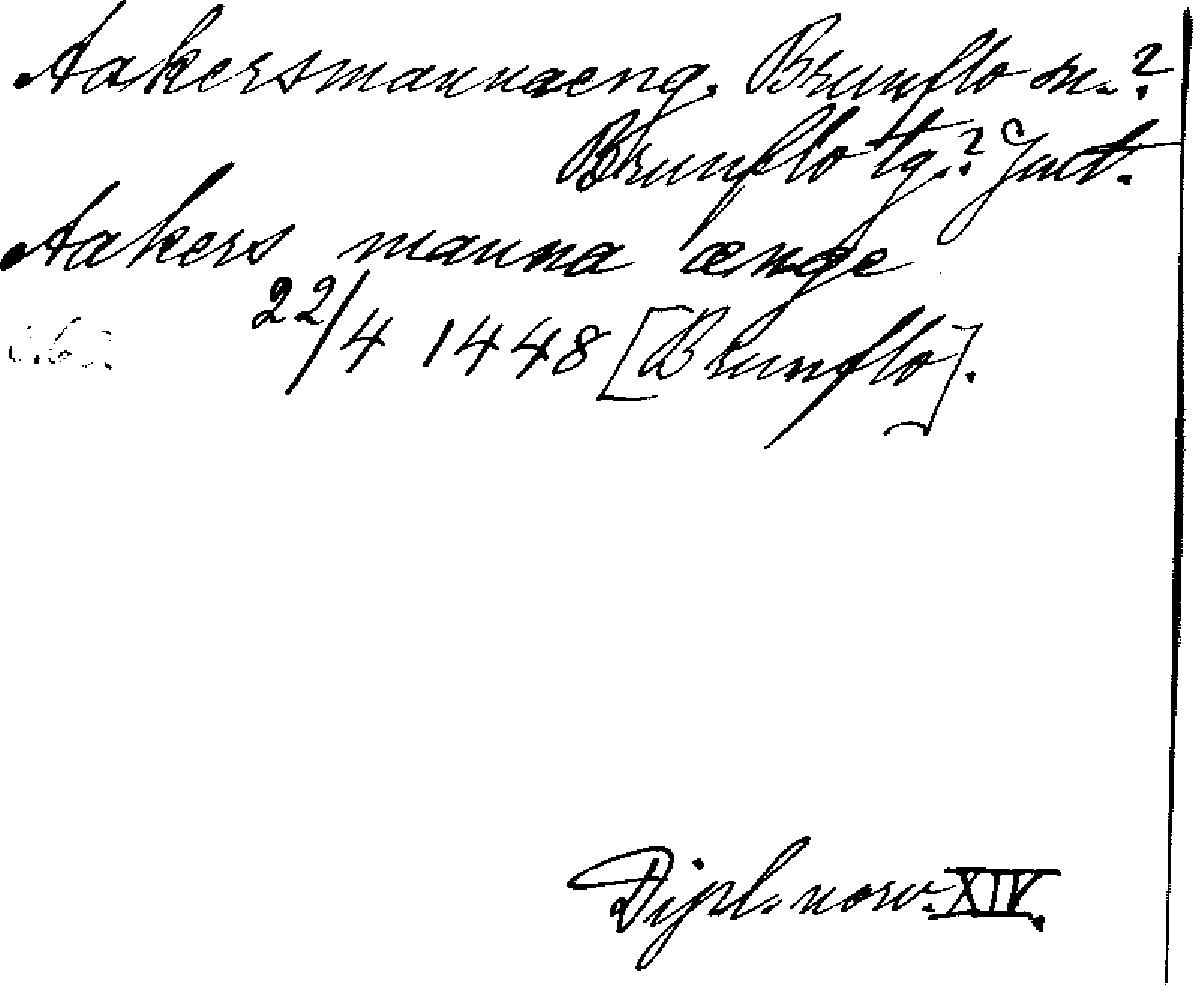 Aakersmannaeng. Brunflo sn.?
Brunflo tg.? Jmt.
Aakers manna ænge
22/4 1448 [Brunflo].
Dipl. norv. XIV.